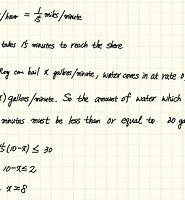 /hour = 1/5 miles/minute
takes 15 minutes to reach the shore
Ray can bail x gallons/minute, water comes in at rate o
x) gallons/minute. So the amount of water which
minutes must be less than or equal to 30 ga
15(10-x) ≤ 30
10-x ≤ 2
x = 8